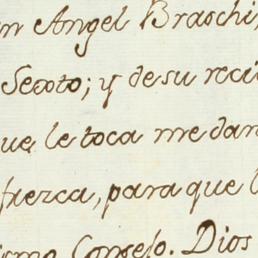 n Angel Braschi,
Sexto; y de su reci
ue le toca me dan
frezca, para que l
ismo Consejo. Dios